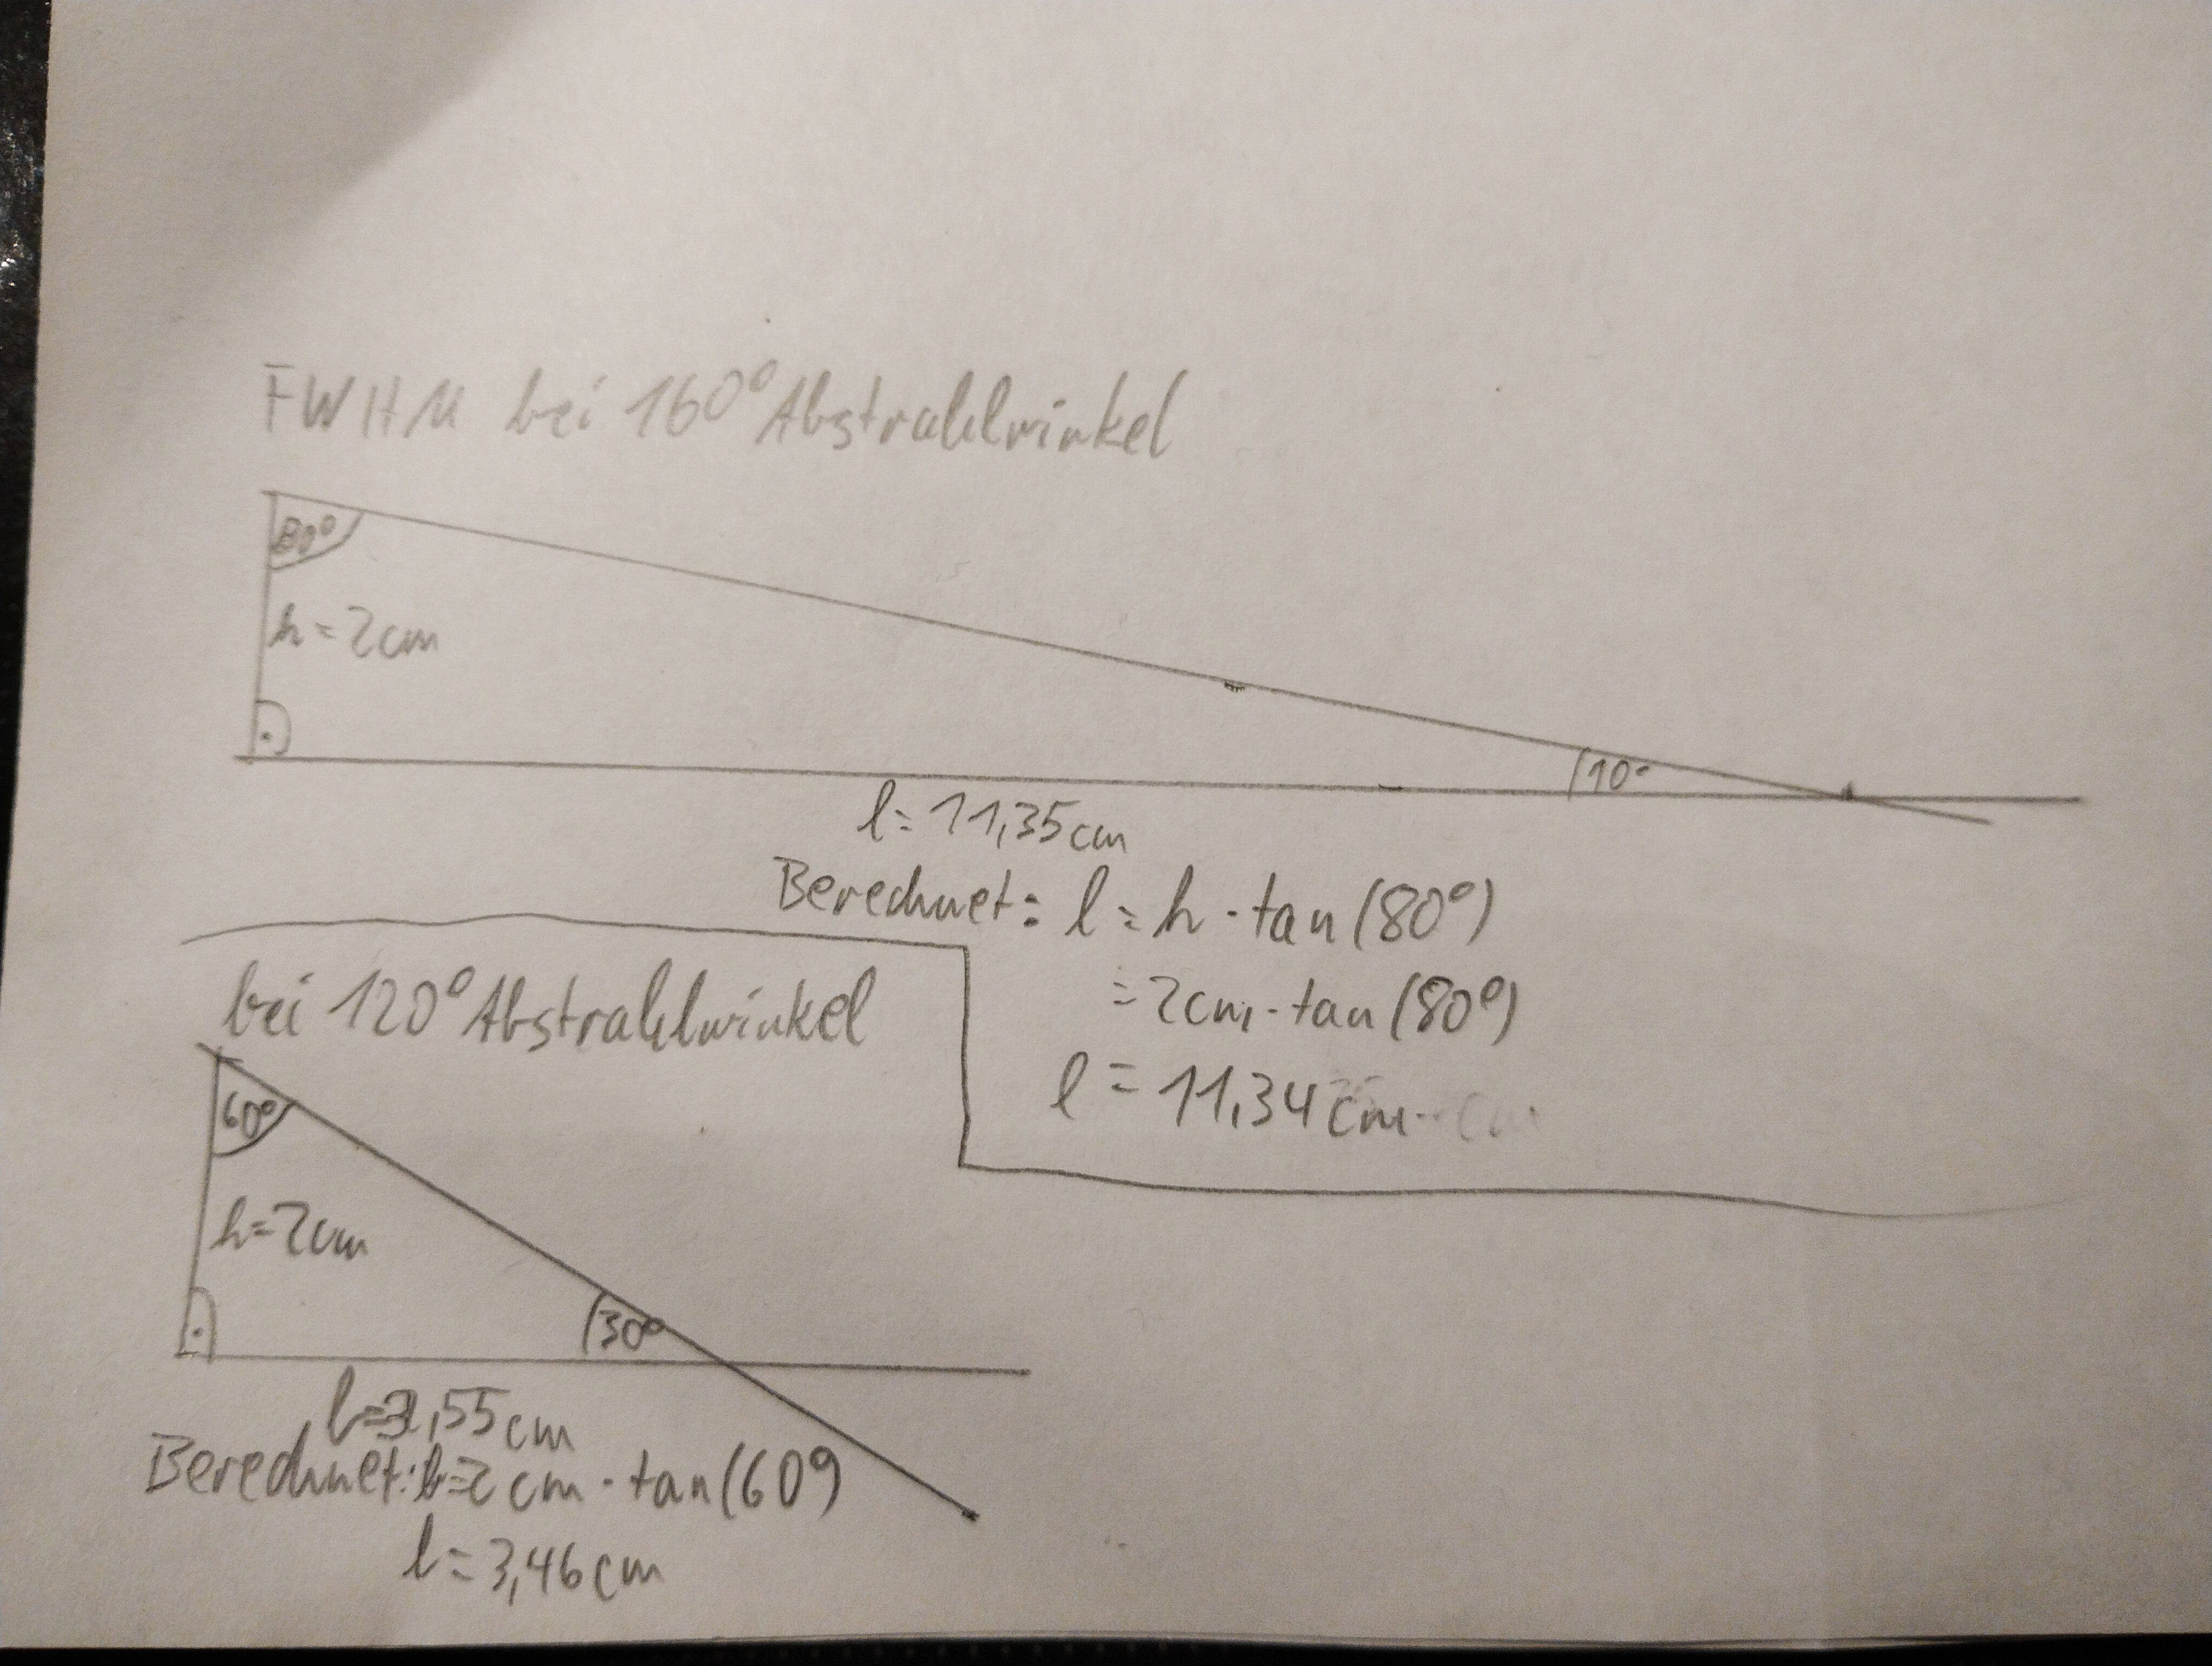 FWHM bei 160° Abstrahlwinkel
80°
h=2cm
10°
l=11,35cm
Berechnet: l=h·tan(80°)
=2cm·tan(80°)
l=11,34cm
bei 120° Abstrahlwinkel
60°
h=2cm
30°
l=3,55cm
Berechnet: l=2cm·tan(60°)
l=3,46cm